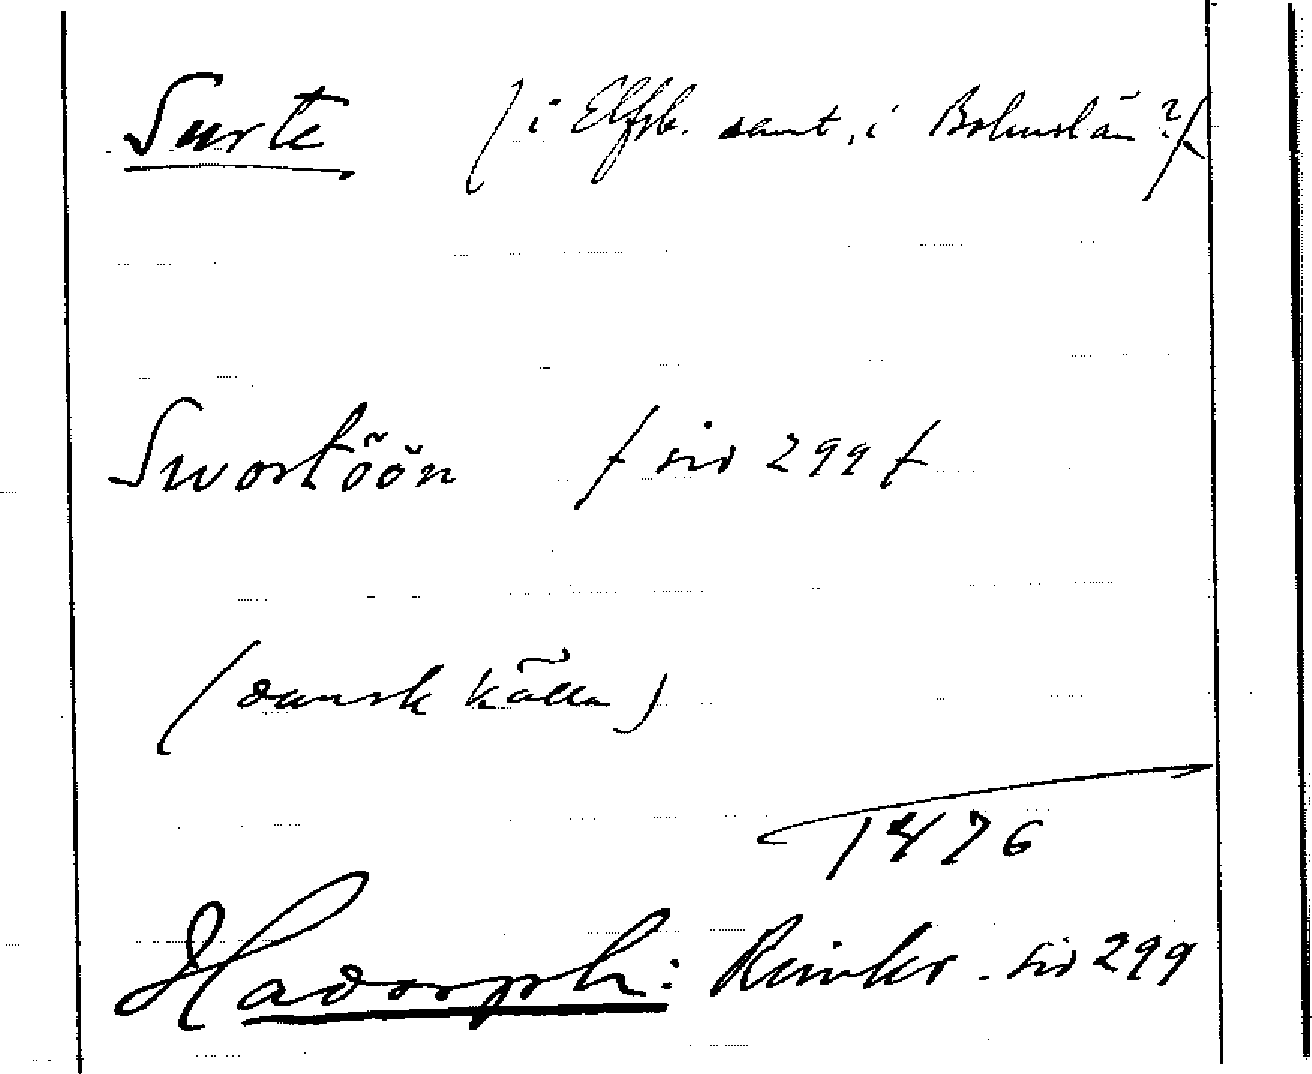 Surte (i Elfsb. samt i Bohuslän?)
Swortöön ( sid 299 )
(dansk källa)
1476
Hadorph: Rimkr. sid 299